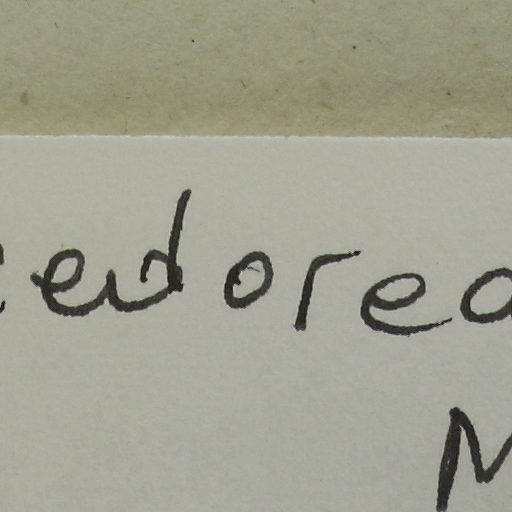 eudorea
M